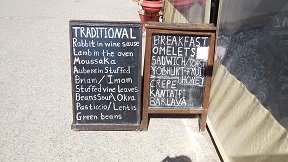 TRADITIONAL
Rabbit in wine sause
Lamb in the oven
Moussaka
Aubergin Stuffed
Briam / Imam
Stuffed vine leaves
Beans Soup \ Okra
Pasticcio / Lentis
Green beans
BREAKFAST
OMELETS
SADWICH / TOAST
YOGHURT-FRUIT
HONEY
CREPE
KANTAIFI
BAKLAVA